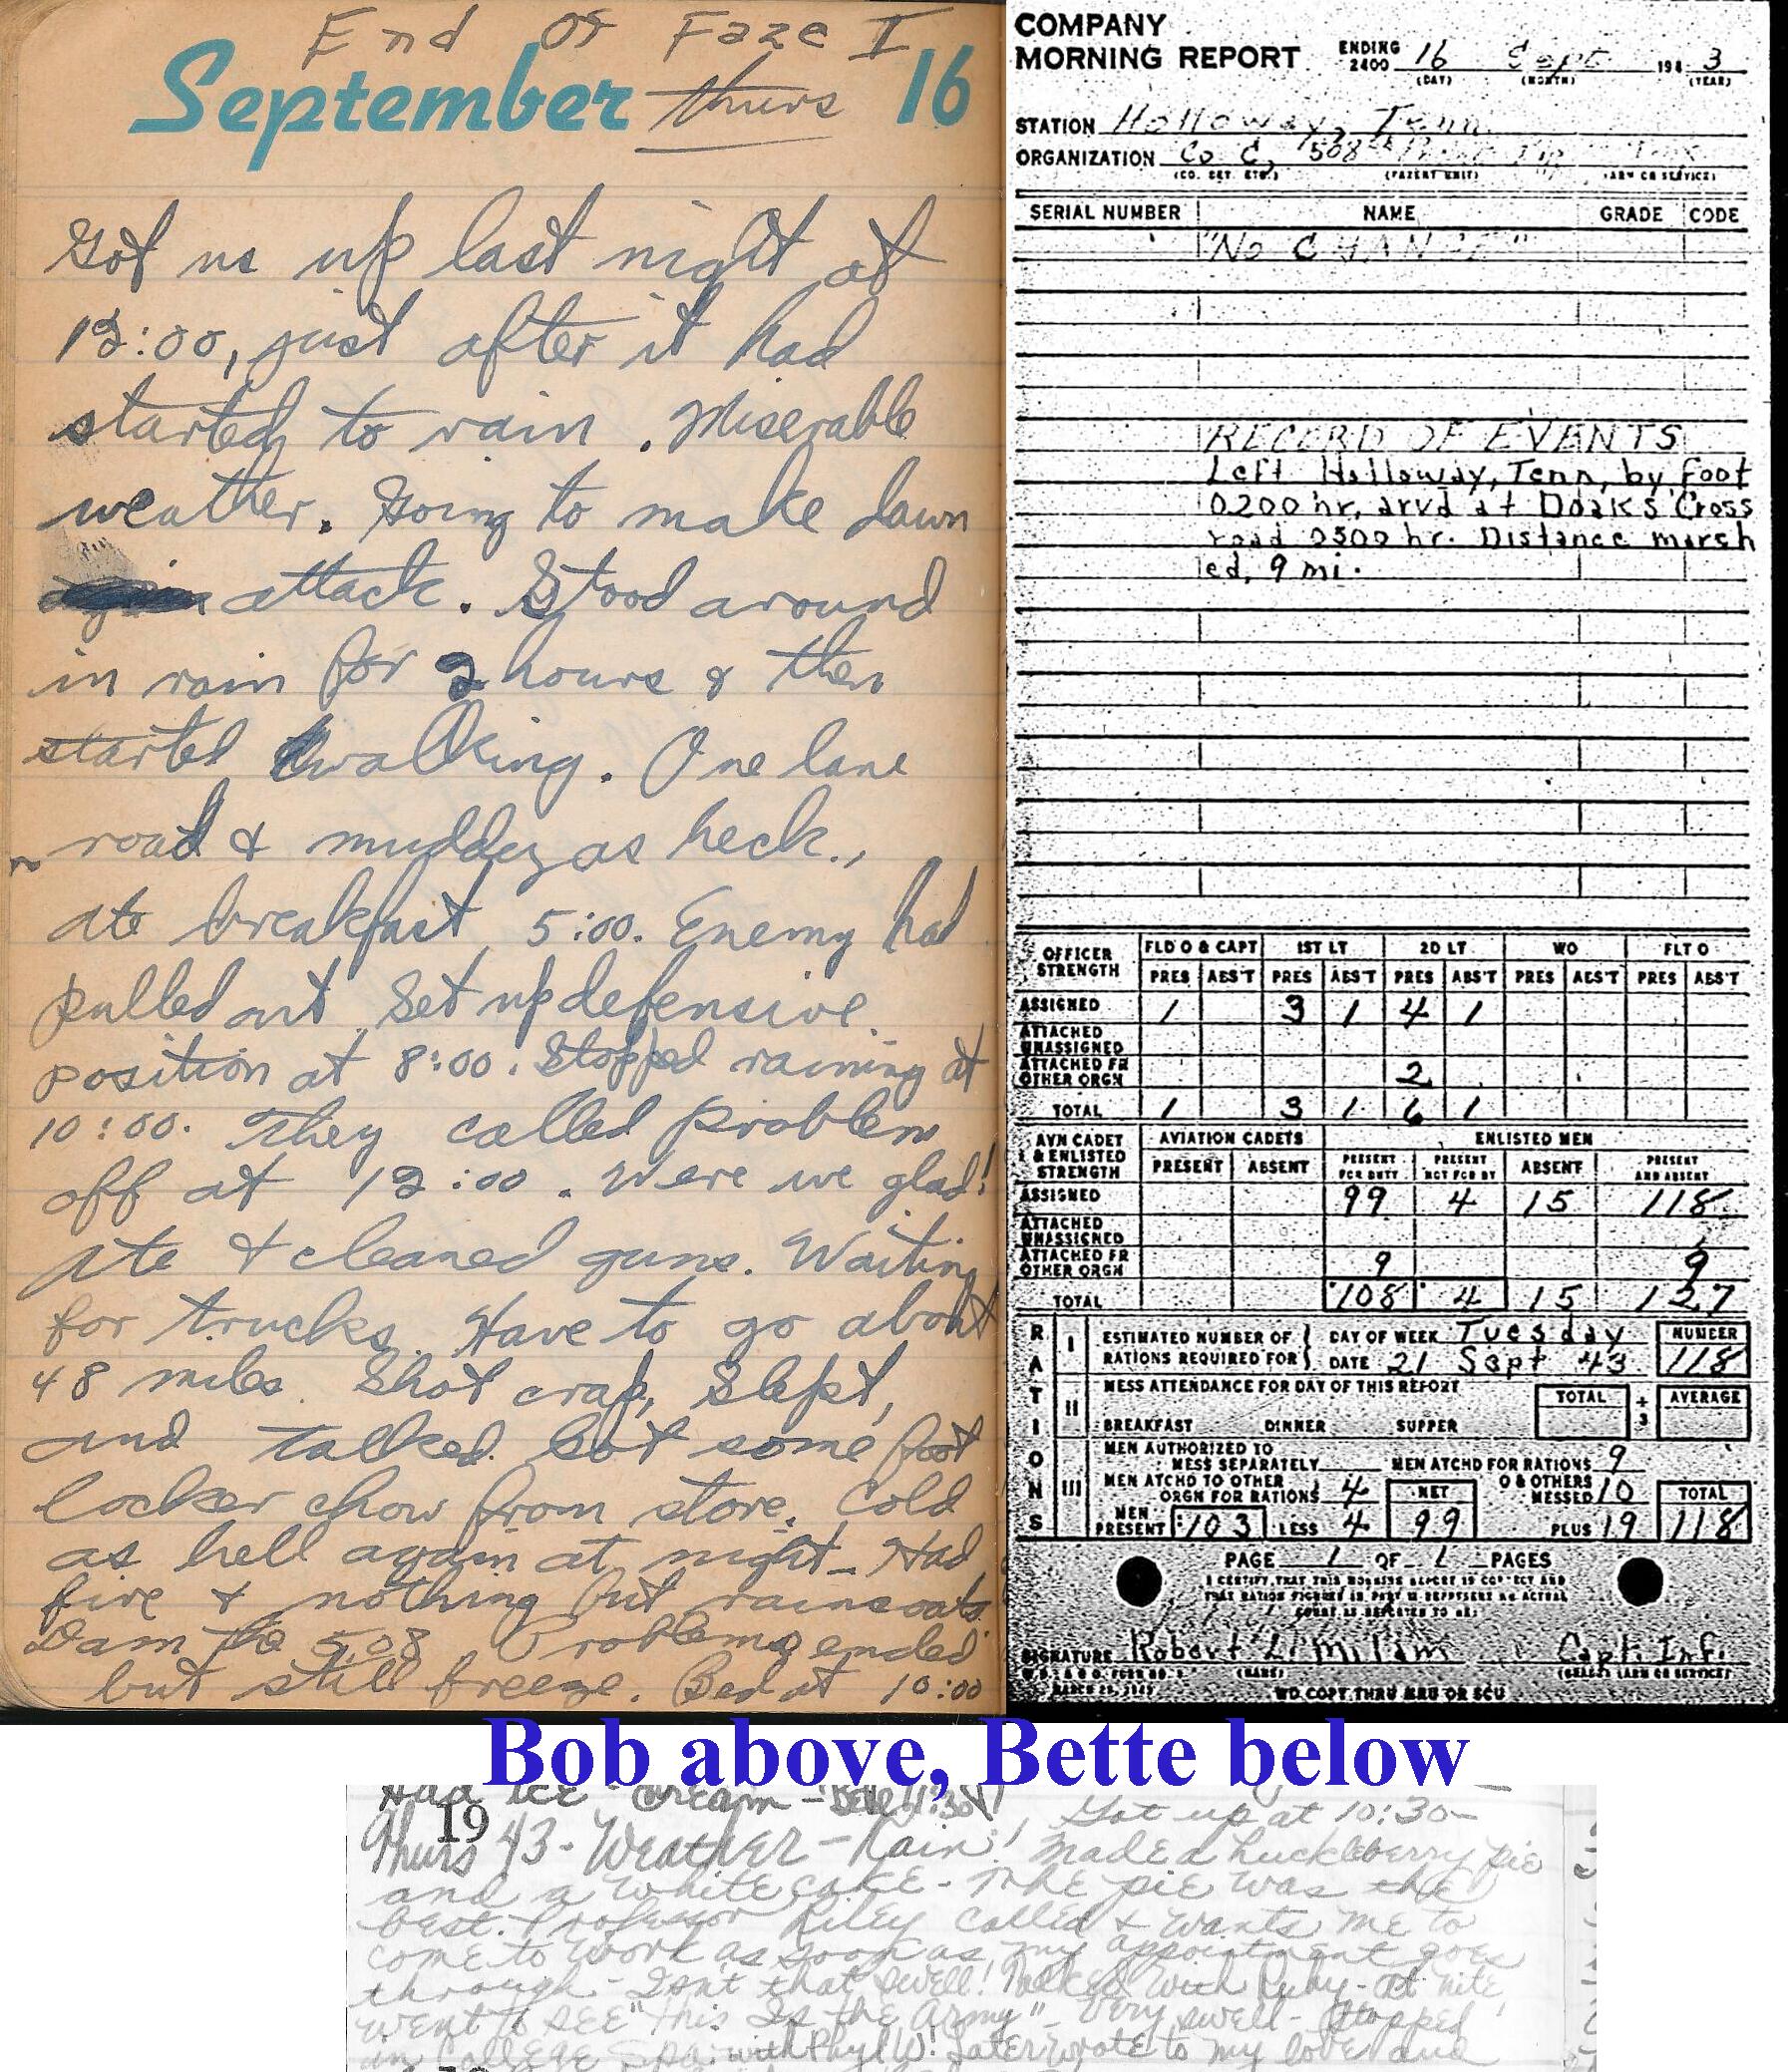 End of Faze I
September Thurs 16
Got us up last night at
12:00, just after it had
started to rain. Miserable
weather. Going to make dawn
attack. Stood around
in rain for 2 hours & then
started walking. One lane
road & muddy as heck.,
ate breakfast 5:00. Enemy had
pulled out. Set up defensive
position at 8:00. Stopped raining at
10:00. They called problem
off at 12:00. Were we glad!
Ate & cleaned guns. Waiting
for trucks. Have to go about
48 miles. Shot crap, Slept,
and talked. Got some foot
locker chow from store. Cold
as hell again at night - Had
fire & nothing but raincoats
Dam the 508 Problems ended
but still freeze. Bed at 10:00
COMPANY
MORNING REPORT ENDING 2400 16 Sept 194 3
(DAY) (MONTH) (YEAR)
STATION Holloway, Tenn
ORGANIZATION Co C, 508th
(CO. DET. ETC.) (PARENT UNIT) (ARM OR SERVICE)
SERIAL NUMBER NAME GRADE CODE
"NO CHANGE"
RECORD OF EVENTS
Left Holloway, Tenn, by foot
0200 hr, arvd at Doaks Cross
road 0500 hr. Distance march
ed, 9 mi.
OFFICER STRENGTH FLD O & CAPT 1ST LT 2D LT WO FLT O
PRES ABS'T PRES ABS'T PRES ABS'T PRES ABS'T PRES ABS'T
ASSIGNED 1 3 1 4 1
ATTACHED UNASSIGNED
ATTACHED FR OTHER ORGN 2
TOTAL 1 3 1 6 1
AVN CADET & ENLISTED STRENGTH AVIATION CADETS ENLISTED MEN
PRESENT ABSENT PRESENT FOR DUTY PRESENT NOT FOR DY ABSENT PRESENT AND ABSENT
ASSIGNED 99 4 15 118
ATTACHED UNASSIGNED
ATTACHED FR OTHER ORGN 9 9
TOTAL 108 4 15 127
RATIONS
I ESTIMATED NUMBER OF RATIONS REQUIRED FOR DAY OF WEEK Tuesday NUMBER
DATE 21 Sept 43 118
II MESS ATTENDANCE FOR DAY OF THIS REPORT TOTAL ÷ 3 AVERAGE
BREAKFAST DINNER SUPPER
III MEN AUTHORIZED TO MESS SEPARATELY MEN ATCHD FOR RATIONS 9
MEN ATCHD TO OTHER ORGN FOR RATIONS 4 NET O & OTHERS MESSED 10 TOTAL
MEN PRESENT 103 LESS 4 99 PLUS 19 118
PAGE 1 OF 1 PAGES
I CERTIFY THAT THIS MORNING REPORT IS CORRECT AND
THAT RATION FIGURES IN PART III REPRESENT AN ACTUAL
COUNT AS REPORTED TO ME:
SIGNATURE Robert L. Milam Capt. Inf.
(NAME) (GRADE) (ARM OR SERVICE)
WD COPY THRU MRU OR SCU
Bob above, Bette below
Had ice cream - Bed 11:30
19
Thurs 43 - Weather - Rain! Got up at 10:30 -
Made a huckleberry pie
and a white cake - The pie was the
best. Professor Riley called & wants me to
come to work as soon as my appointment goes
through - Isn't that swell! Talked with Ruby - At nite
went to see "This Is the Army" - Very swell - Stopped
in College Spa with Phyl W! Later wrote to my love and